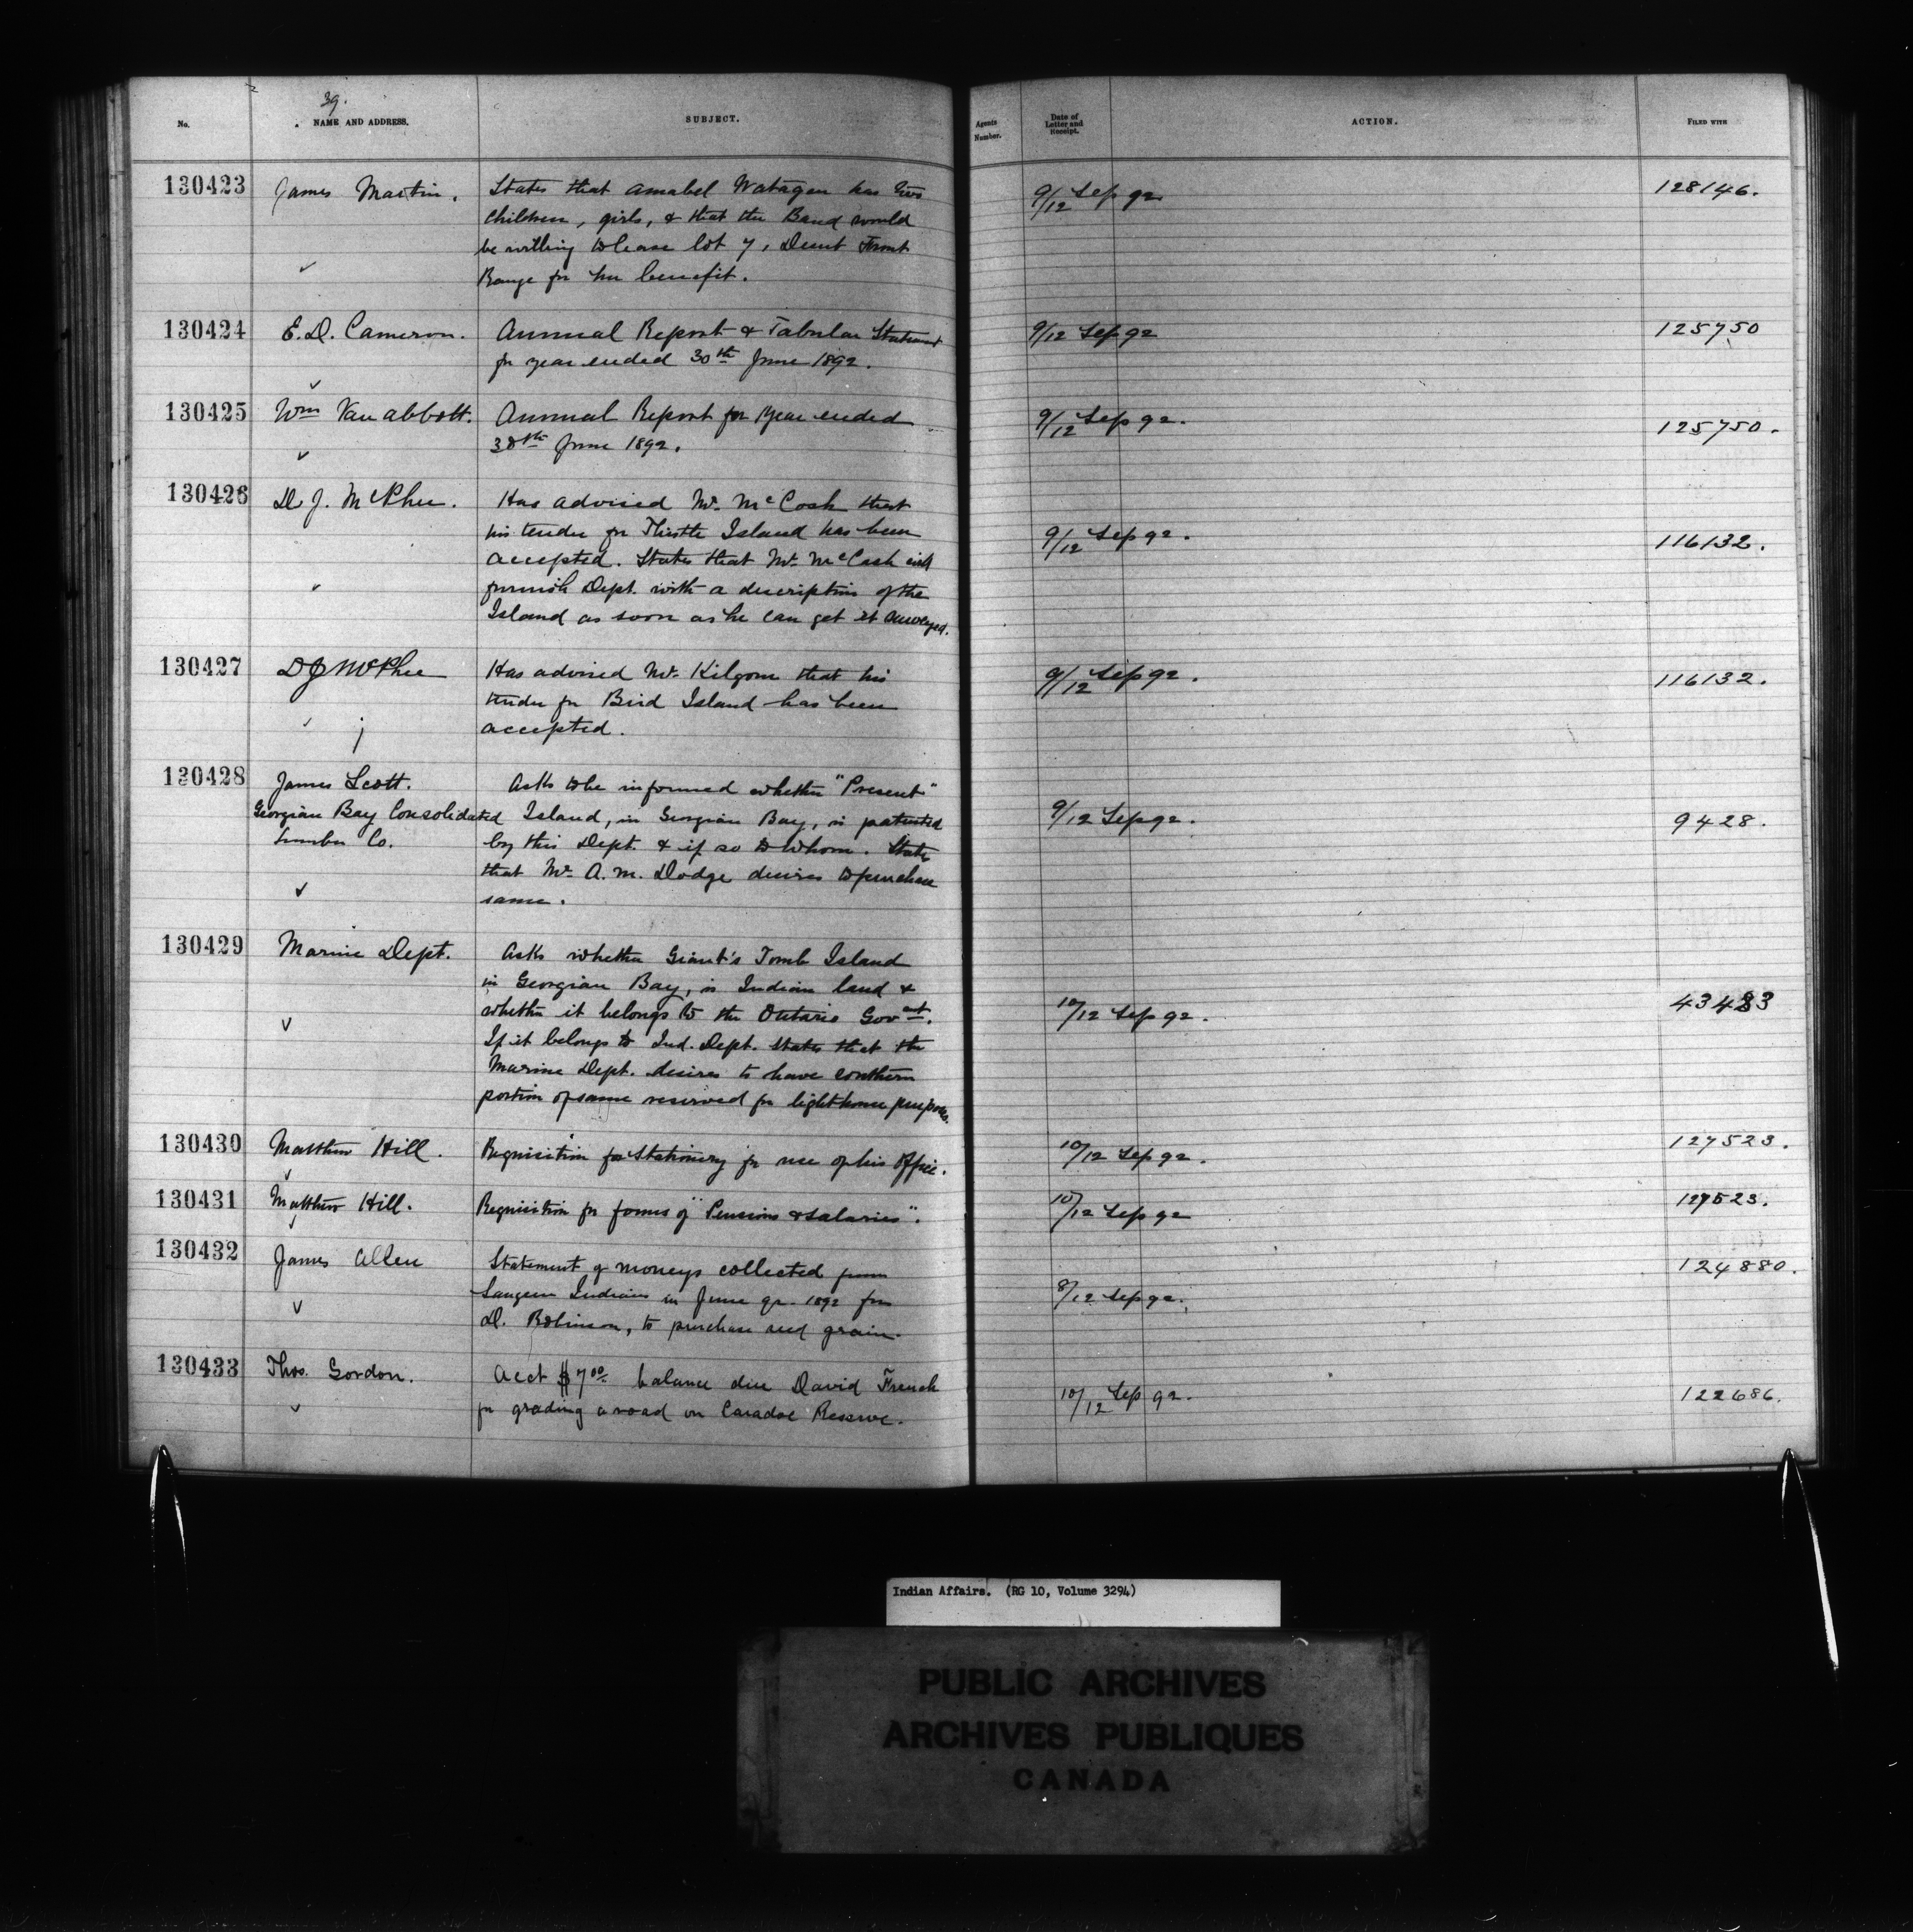 39.
No.
NAME AND ADDRESS.
SUBJECT.
Agents Number.
Date of Letter and Receipt.
ACTION.
FILED WITH
130423 James Martin. States that Amabel Watagen has two 9/12 Sep 92 128146.
children, girls, & that the Band would
be willing to lease lot 7, Front
Range for her benefit.
130424 E. D. Cameron. Annual Report & Tabular Statement 9/12 Sep 92 125750
for year ended 30th June 1892.
130425 Wm Van Abbott. Annual Report for year ended 9/12 Sep 92. 125750.
30th June 1892.
130426 D. J. McPhee. Has advised Mr. McCosh that
his tender for Thistle Island has been 9/12 Sep 92. 116132.
accepted. States that Mr. McCosh will
furnish Dept. with a description of the
Island as soon as he can get it surveyed.
130427 D J McPhee Has advised Mr. Kilgour that his 9/12 Sep 92. 116132.
tender for Bird Island has been
accepted.
130428 James Scott. Asks to be informed whether "Present"
Georgian Bay Consolidated Island, in Georgian Bay, is patented 9/12 Sep 92. 9428.
Lumber Co. by this Dept. & if so to whom. States
that Mr. A. M. Dodge desires to purchase
same.
130429 Marine Dept. Asks whether Giant's Tomb Island
in Georgian Bay, is Indian land &
whether it belongs to the Ontario Govmt. 10/12 Sep 92. 43483
If it belongs to Ind. Dept. states that the
Marine Dept. desires to have southern
portion of same reserved for lighthouse purposes.
130430 Matthew Hill. Requisition for Stationery for use of his office. 10/12 Sep 92. 127523.
130431 Matthew Hill. Requisition for forms of "Pensions & Salaries". 10/12 Sep 92 127523.
130432 James Allen Statement of moneys collected from 124880.
Saugeen Indians in June qr. 1892 for 8/12 Sep 92.
D. Robinson, to purchase seed grain.
130433 Thos. Gordon. Acct $7.00 balance due David French 10/12 Sep 92. 122686.
for grading a road on Caradoc Reserve.
Indian Affairs. (RG 10, Volume 3294)
PUBLIC ARCHIVES
ARCHIVES PUBLIQUES
CANADA